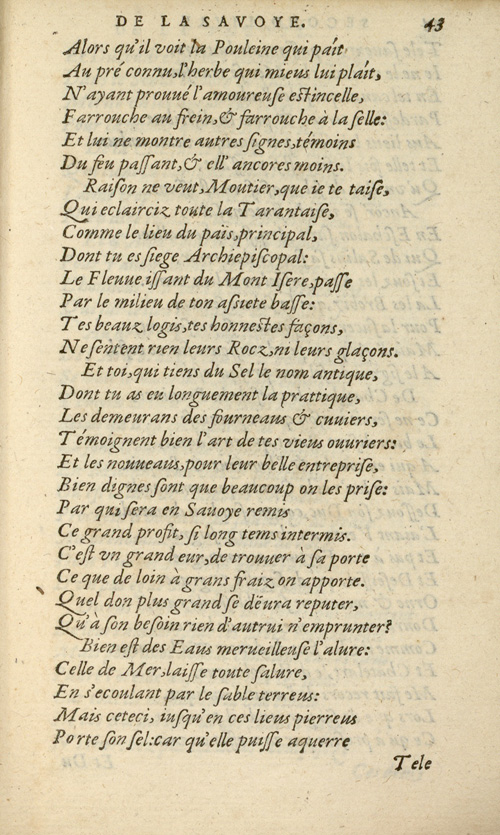 DE LA SAVOYE. 43
Alors qu'il voit la Pouleine qui paît
Au pré connu, l'herbe qui mieus lui plaît,
N'ayant prouué l'amoureuse estincelle,
Farrouche au frein, & farrouche à la selle:
Et lui ne montre autres signes, témoins
Du feu passant, & ell' ancores moins.
Raison ne veut, Moutier, que ie te taise,
Qui eclairciz toute la Tarantaise,
Comme le lieu du païs, principal,
Dont tu es siege Archiepiscopal:
Le Fleuue issant du Mont Isere, passe
Par le milieu de ton assiete basse:
Tes beauz logis, tes honnestes façons,
Ne sentent rien leurs Rocz, ni leurs glaçons.
Et toi, qui tiens du Sel le nom antique,
Dont tu as eu longuement la prattique,
Les demeurans des fourneaus & cuuiers,
Témoignent bien l'art de tes vieus ouuriers:
Et les nouueaus, pour leur belle entreprise,
Bien dignes sont que beaucoup on les prise:
Par qui sera en Sauoye remis
Ce grand profit, si long tems intermis.
C'est vn grand eur, de trouuer à sa porte
Ce que de loin à grans fraiz on apporte.
Quel don plus grand se dëura reputer,
Qu'à son besoin rien d'autrui n'emprunter?
Bien est des Eaus merueilleuse l'alure:
Celle de Mer, laisse toute salure,
En s'ecoulant par le sable terreus:
Mais ceteci, iusqu'en ces lieus pierreus
Porte son sel: car qu'elle puisse aquerre
Tele